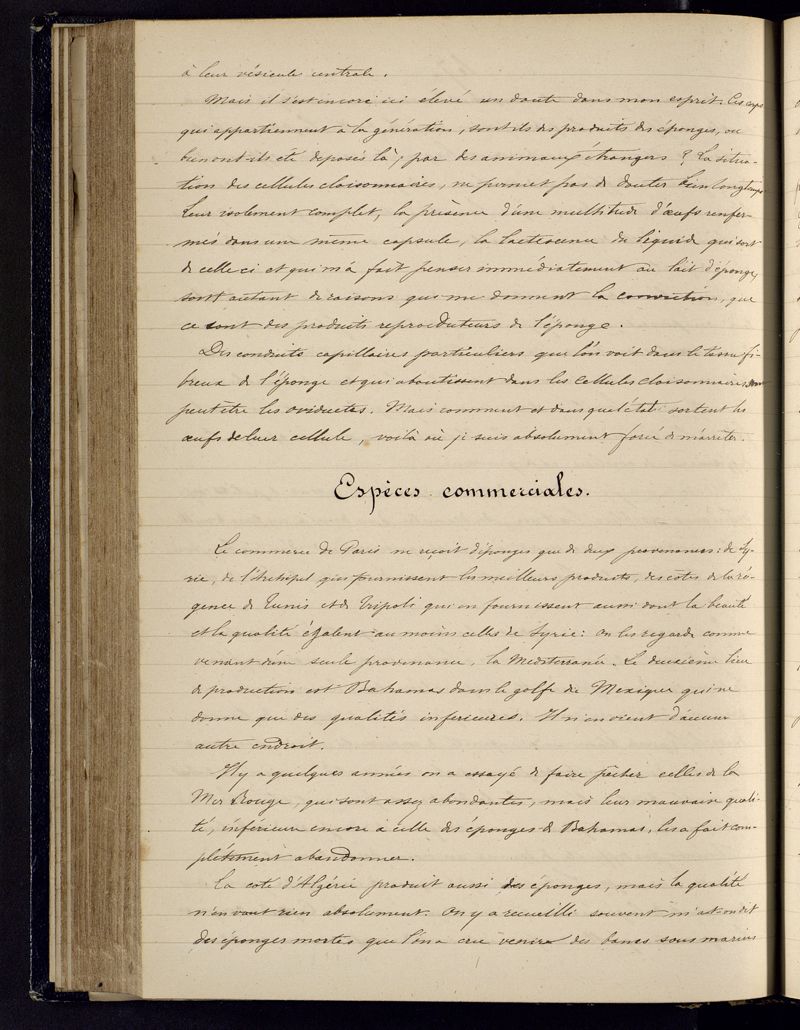 à leur vésicule centrale.
Mais il s'est encore ici élevé un doute dans mon esprit. Ces corps
qui appartiennent à la génération, sont-ils des produits des éponges, ou
bien ont-ils été deposés là, par des animaux étrangers ? La situa-
tion des cellules cloisonnaires, ne permet pas de douter bien longtemps
Leur isolement complet, la présence d'une multitude d'œufs renfer-
més dans une même capsule, la lactescence du liquide qui sort
de celle ci et qui m'a fait penser immédiatement au lait d'éponge,
sont autant de raisons qui me donnent la conviction, que
ce sont des produits reproducteurs de l'éponge.
Des conduits capillaires particuliers que l'on voit dans le tissu fi-
breux de l'éponge et qui aboutissent dans les cellules cloisonnaires sont
peut être les oviductes. Mais comment et dans quel état sortent les
œufs de leur cellule, voilà où je suis absolument forcé de m'arrêter.
Espèces commerciales.
Le commerce de Paris ne reçoit d'éponges que de deux provenances: de Sy-
rie, de l'Archipel qui fournissent les meilleurs produits, des côtes de la ré-
gence de Tunis et de Tripoli qui en fournissent aussi dont la beauté
et la qualité égalent au moins celles de Syrie: On les regarde comme
venant d'une seule provenance, la Mediterranée. Le deuxième lieu
de production est Bahamas dans le golfe du Mexique qui ne
donne que des qualités inferieures. Il n'en vient d'aucun
autre endroit.
Il y a quelques années on a essayé de faire pêcher celles de la
Mer Rouge, qui sont assez abondantes, mais leur mauvaise quali-
té, inférieure encore à celle des éponges de Bahamas, les a fait com-
plètement abandonner.
La cote d'Algérie produit aussi des éponges, mais la qualité
n'en vaut rien absolument. On y a recueilli souvent m'a-t-on dit
des éponges mortes que l'on a cru venir des bancs sous marins